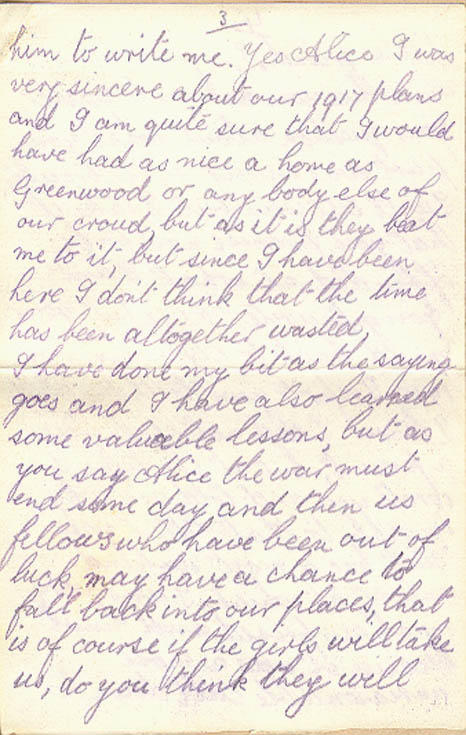 3
him to write me. Yes Alice I was
very sincere about our 1917 plans
and I am quite sure that I would
have had as nice a home as
Greenwood or any body else of
our croud, but as it is they beat
me to it, but since I have been
here I don't think that the time
has been altogether wasted,
I have done my bit as the saying
goes and I have also learned
some valuable lessons, but as
you say Alice the war must
end some day and then us
fellows who have been out of
luck, may have a chance to
fall back into our places, that
is of course if the girls will take
us, do you think they will